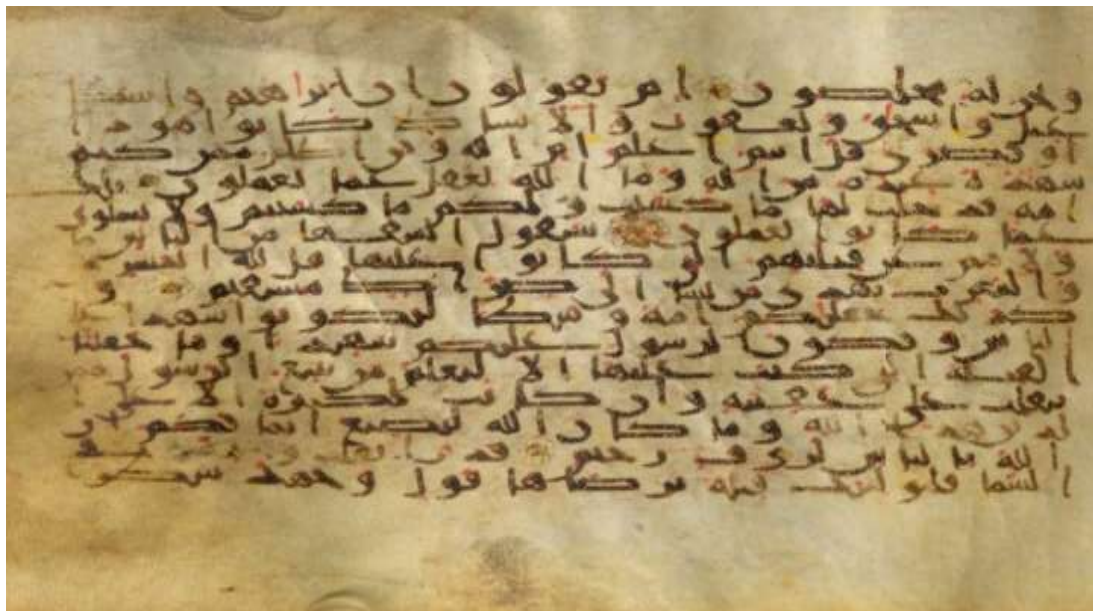 ونحن له مخلصون ام تقولون ان ابراهيم واسمـ
عيل واسحق ويعقوب والاسباط كانوا هودا
او نصرى قل انتم اعلم ام الله ومن اظلم ممن كتم
شهدة عنده من الله وما الله بغفل عما تعملون تلك
امة قد خلت لها ما كسبت ولكم ما كسبتم ولا تسلون
عما كانوا يعملون سيقول السفها من الناس ما
ولاهم عن قبلتهم التي كانوا عليها قل لله المشرق
والمغرب يهدي من يشا الى صرط مستقيم و
كذلك جعلنكم امة وسطا لتكونوا شهدا على
الناس ويكون الرسول عليكم شهيدا وما جعلنا
القبلة التي كنت عليها الا لنعلم من يتبع الرسول ممن
ينقلب على عقبيه وان كانت لكبيرة الا على ا
لذين هدى الله وما كان الله ليضيع ايمنكم ان
الله بالناس لروف رحيم قد نرى تقلب وجهك في
السما فلنولينك قبلة ترضاها فول وجهك شطر